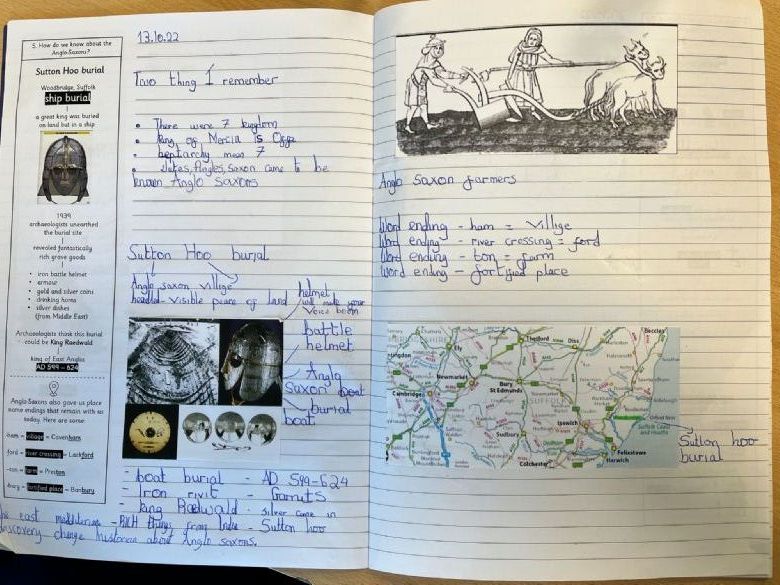 5. How do we know about the
Anglo-Saxons?
Sutton Hoo burial
Woodbridge, Suffolk
ship burial
a great king was buried
on land but in a ship
1939
archaeologists unearthed
the burial site
revealed fantastically
rich grave goods
• iron battle helmet
• armour
• gold and silver coins
• drinking horns
• silver dishes
(from Middle East)
Archaeologists think this burial
could be King Raedwald
king of East Anglia
AD 599 – 624
Anglo-Saxons also gave us place
name endings that remain with us
today. Here are some:
-ham = village = Cavenham
-ford = river crossing = Lackford
-ton = farm = Preston
-bury = fortified place = Banbury
13.10.22
Two thing I remember
• There were 7 kingdom
• king of Mercia is Offa
• heptarchy mean 7
• Jutes, Angles, Saxon came to be
known Anglo saxons
Sutton Hoo burial
Anglo saxon villige
headland - visible peace of land
helmet
will make your
voice boom
battle
helmet
Anglo
Saxon boat
burial
boat
- boat burial - AD 599-624
- Iron rivit - Garnuts
- king Raedwald - silver came in
the east - RICH things from India - Sutton hoo
discovery change historian about Anglo saxons.
Anglo Saxon farmers
Word ending - ham = villige
Word ending - river crossing = ford
Word ending - ton = farm
Word ending - fortified place
Beccles
Thetford
Diss
Newmarket
Bury
St Edmunds
Cambridge
SUFFOLK
Ipswich
Sudbury
Suffolk Coast
and Heaths
Felixstowe
Harwich
Colchester
Sutton hoo
burial